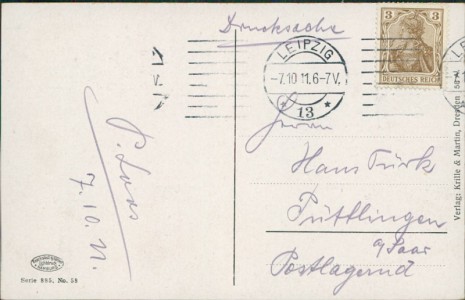 Drucksache
LEIPZIG
-7.10 11.6-7V.
* 13 *
3 3
DEUTSCHES REICH
V.
Herrn
Hans Türk
Püttlingen
a/Saar
Postlagernd
P. Loos
7.10.11.
Serie 895, No. 58
Verlag: Krille & Martin, Dresden